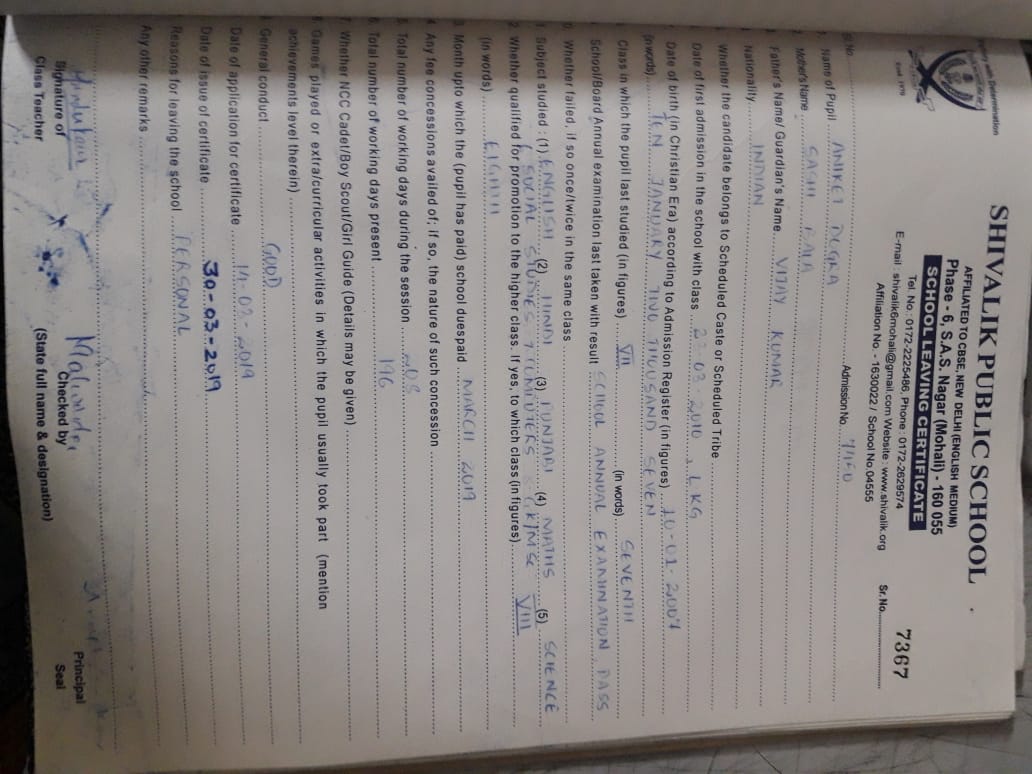 with Determination
Estd. 1970
SHIVALIK PUBLIC SCHOOL
AFFILIATED TO CBSE, NEW DELHI (ENGLISH MEDIUM)
Phase - 6, S.A.S. Nagar (Mohali) - 160 055
SCHOOL LEAVING CERTIFICATE
Tel. No : 0172-2225486, Phone : 0172-2629574
E-mail : shivalik6mohali@gmail.com Website : www.shivalik.org
Affiliation No. - 1630022 / School No 04555
Sr. No. 7367
Sl No. Admission No.
1. Name of Pupil ANIKET DOGRA
2. Mother's Name SASHI BALA
3. Father's Name/ Guardian's Name VIJAY KUMAR
Nationality INDIAN
Whether the candidate belongs to Scheduled Caste or Scheduled Tribe
Date of first admission in the school with class 23-03-2010, LKG
Date of birth (in Christian Era) according to Admission Register (in figures) 10-01-2007
(in words) TEN JANUARY TWO THOUSAND SEVEN
Class in which the pupil last studied (in figures) VII (in words) SEVENTH
School/Board Annual examination last taken with result SCHOOL ANNUAL EXAMINATION, PASS
Whether failed, if so once/twice in the same class
Subject studied : (1) ENGLISH (2) HINDI (3) PUNJABI (4) MATHS (5) SCIENCE
6 SOCIAL STUDIES 7 COMPUTERS
Whether qualified for promotion to the higher class. If yes, to which class (in figures) VIII
(in words) EIGHTH
3. Month upto which the (pupil has paid) school duespaid MARCH 2019
4 Any fee concessions availed of; if so, the nature of such concession
5. Total number of working days during the session 203
6. Total number of working days present 196
7 Whether NCC Cadet/Boy Scout/Girl Guide (Details may be given)
8 Games played or extra/curricular activities in which the pupil usually took part (mention
achievements level therein)
General conduct GOOD
Date of application for certificate 14-03-2019
Date of issue of certificate 30-03-2019
Reasons for leaving the school PERSONAL
Any other remarks
Signature of
Class Teacher
Checked by
(State full name & designation)
Principal
Seal